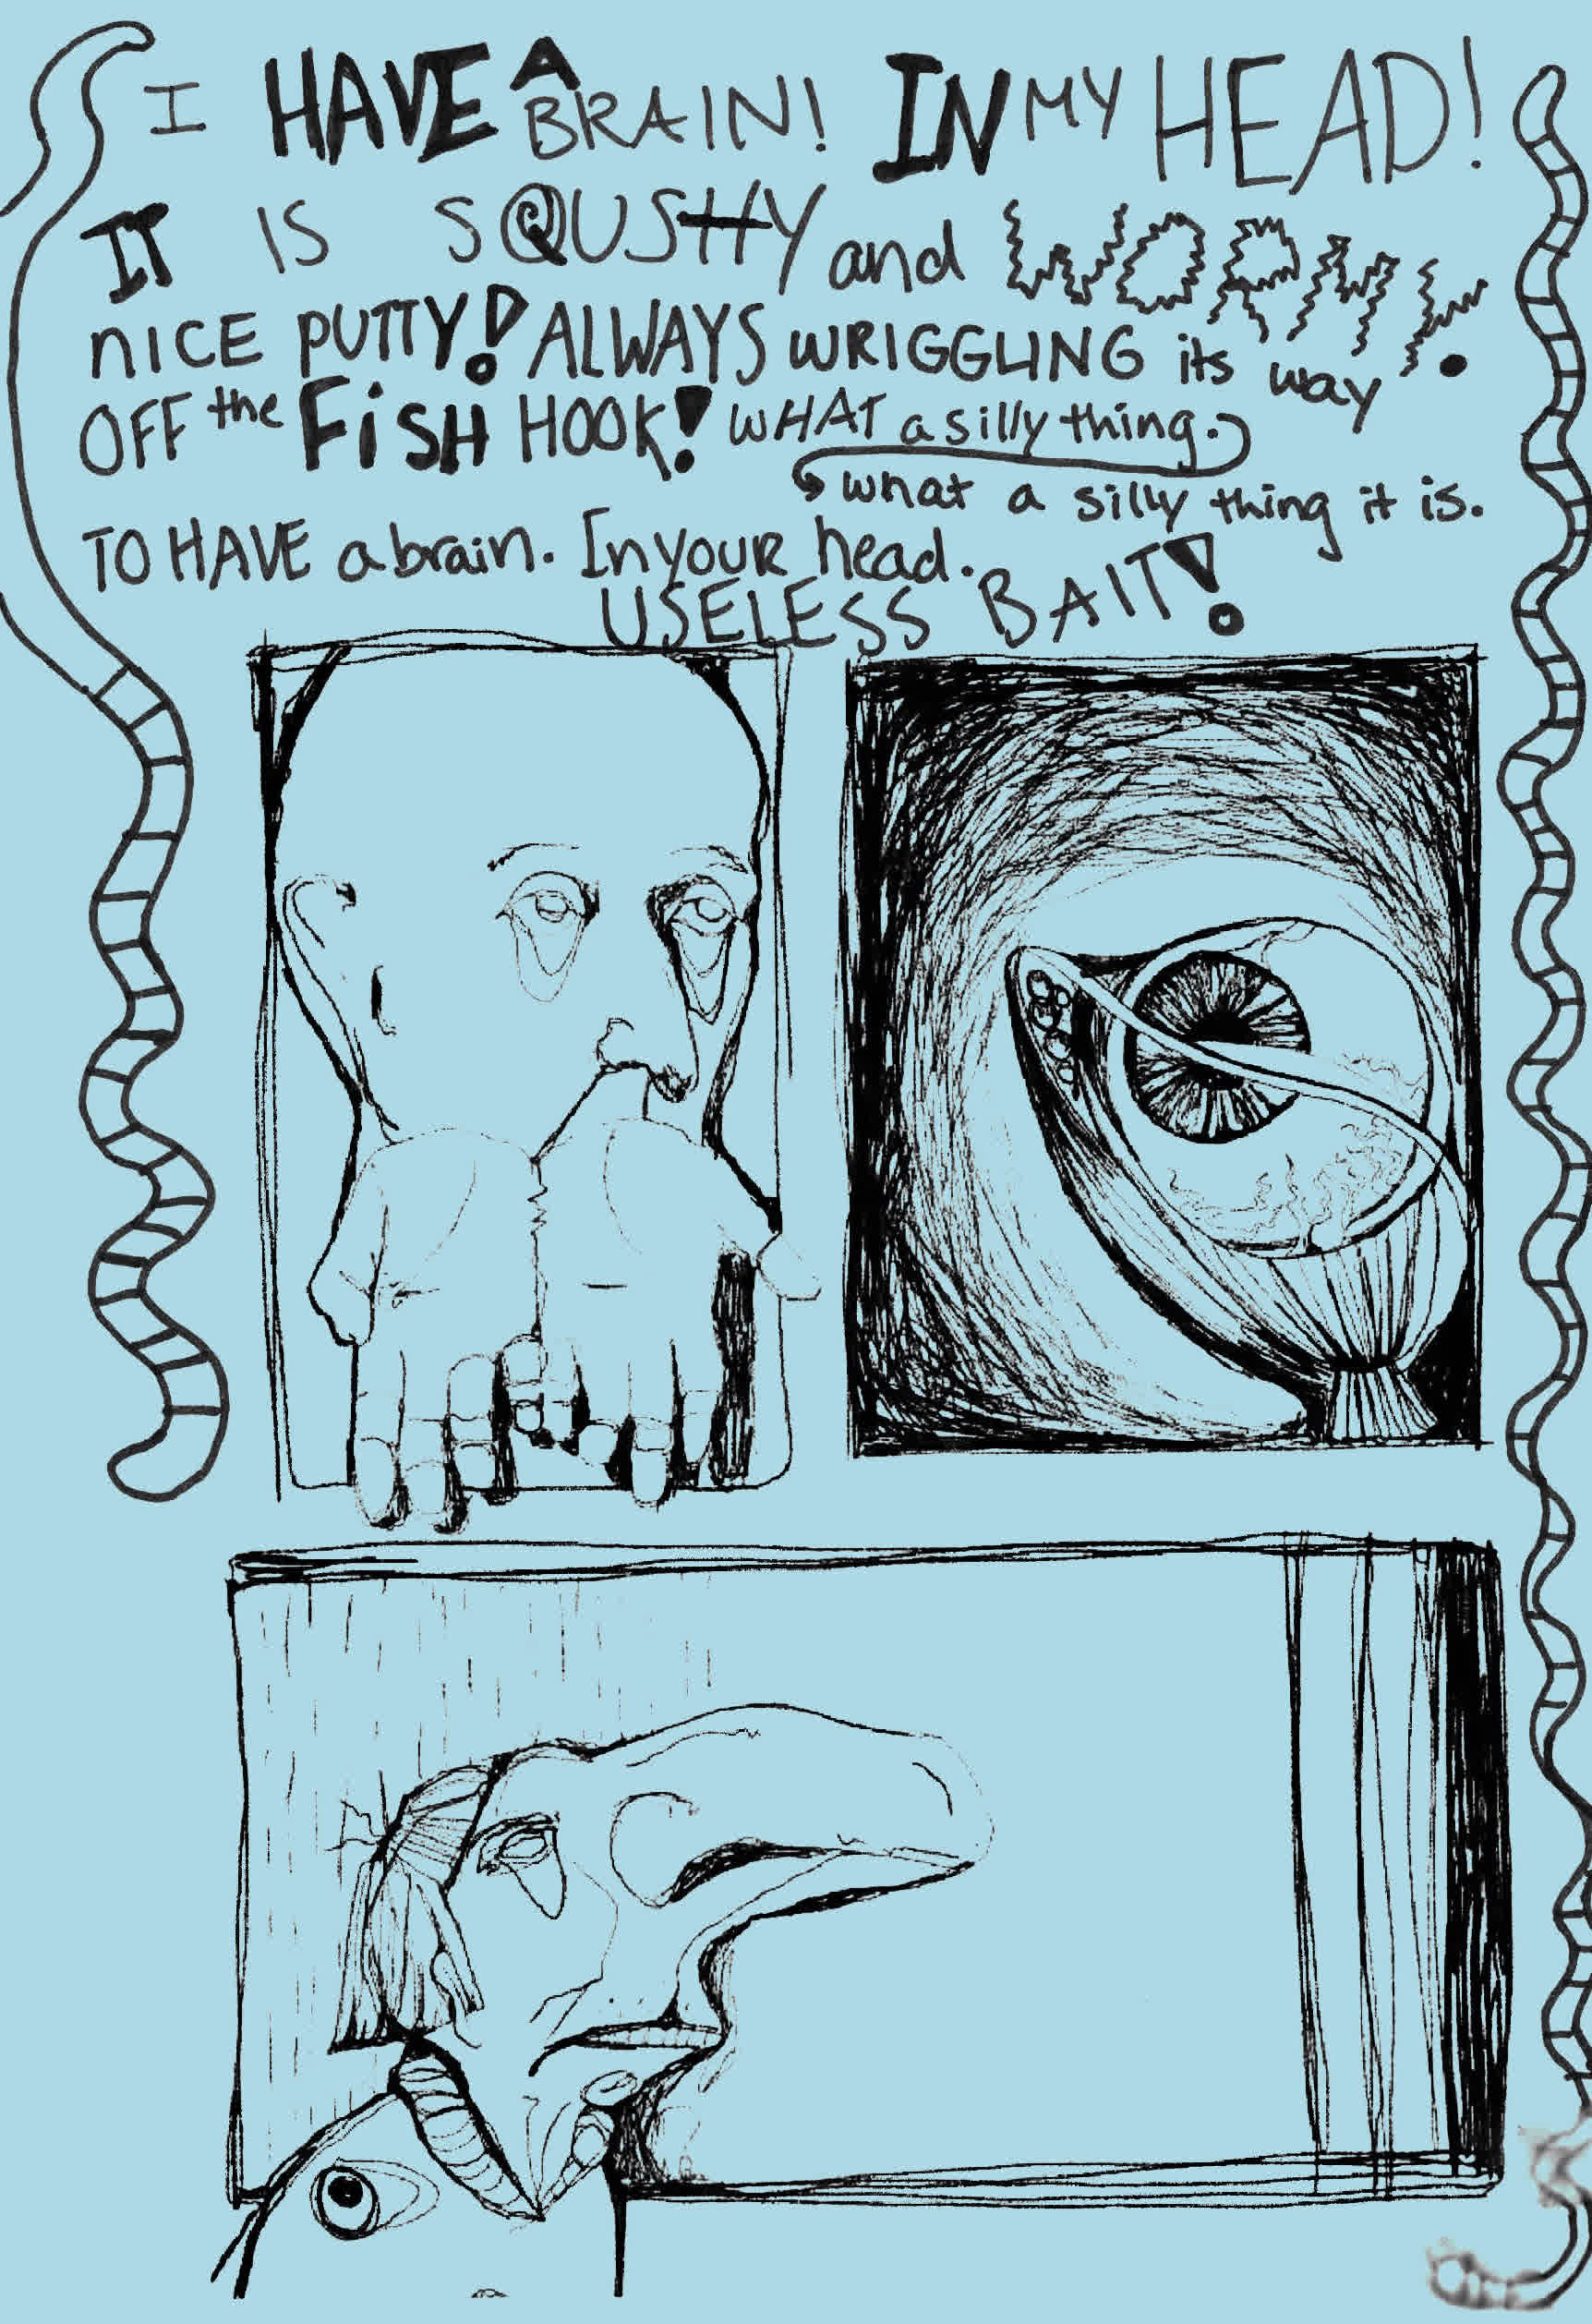 I HAVE A BRAIN! IN MY HEAD!
IT IS SQUSHY and WORMY.
NICE PUTTY! ALWAYS WRIGGLING its way
OFF the FiSH HOOK! WHAT a silly thing.
what a silly thing it is.
TO HAVE a brain. In YOUR head.
USELESS BAIT!